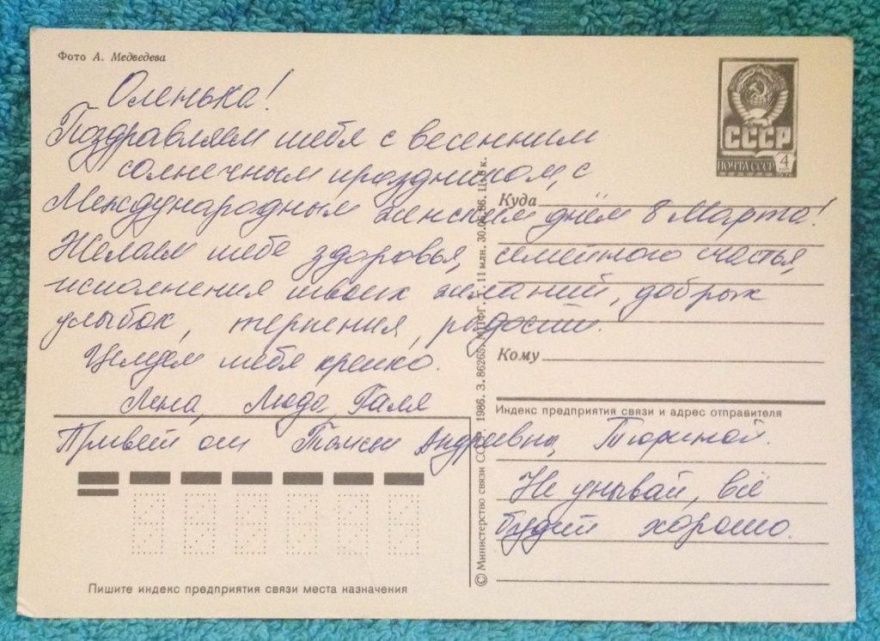 Фото А. Медведева
Оленька!
Поздравляем тебя с весенним
солнечным праздником, с
Международным женским днём 8 Марта!
Желаем тебе здоровья, семейного счастья,
исполнения твоих желаний, добрых
улыбок, терпения, радости.
Целуем тебя крепко.
Лена, Люда, Галя
Привет от Андреевны,
Не унывай, всё
будет хорошо.
СССР
ПОЧТА СССР 4
Куда
Кому
Индекс предприятия связи и адрес отправителя
© Министерство связи СССР. 1986. З. 86265. 11 млн. 30.06.86. Ц. 8 к.
Пишите индекс предприятия связи места назначения